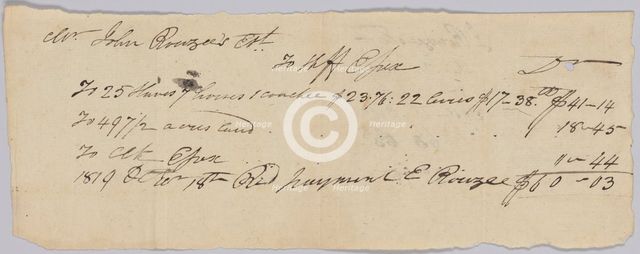 Mr. John Rouzee's Est.
To Shff Essex Dr
To 25 Slaves 7 horses 1 coachee $23.76. 22 Lives $17-38. $41-14
To 497 1/2 acres land . . . 18-45
To Clk Essex . . . 11-44
1819 18th Recd payment E Rouzee $60-03
Heritage
Heritage
Heritage